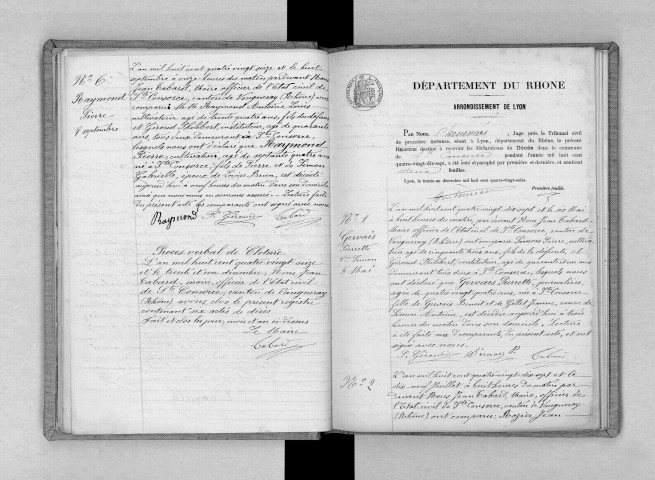 N° 6
Raymond
Pierre
8 septembre
L'an mil huit cent quatre vingt seize et le huit
septembre à onze heures du matin pardevant Nous
Jean Cabard, Maire officier de l'Etat civil de
Ste Consorce, canton de Vaugneray (Rhône) ont
comparu Raymond Antoine Louis
cultivateur, agé de trente quatre ans, fils du défunt
et Giroud Philibert, instituteur, agé de quarante
ans, tous deux demeurant à Ste Consorce,
lesquels nous ont déclaré que Raymond
Pierre, cultivateur, agé de septante quatre ans
né à Ste Consorce, fils de Pierre et de Simon
Gabrielle, époux de Louise Brun, est décédé
aujourd'hui à neuf heures du matin dans son domicile
ainsi que nous nous en sommes assuré. Lecture faite
du présent acte les comparants ont signé avec nous.
Raymond Pt. Giroud Cabard
Procès verbal de Cloture
L'an mil huit cent quatre vingt seize
et le trente et un décembre, Nous Jean
Cabard, maire, officier de l'Etat civil
de Ste Consorce, canton de Vaugneray
(Rhône) avons clos le present registre
contenant six actes de décès
Fait et clos les jour, mois et an ci dessus
Le Maire
Cabard
DÉPARTEMENT DU RHONE
ARRONDISSEMENT DE LYON
PAR NOUS, Juge, près le Tribunal civil
de première instance, séant à Lyon, département du Rhône, le présent
Registre destiné à recevoir les Déclarations de DÉCÈS dans la commune
de Ste Consorce pendant l'année mil huit cent
quatre-vingt-dix-sept, a été coté et paraphé par première et dernière, et contient
feuilles.
Lyon, le trente-un décembre mil huit cent quatre-vingt-seize.
Première feuille.
N° 1
Gervais
Pierrette
Vve Simon
6 Mai
L'an mil huit cent quatre vingt dix sept et le six Mai
à huit heures du matin, par devant Nous Jean Cabard
Maire officier de l'Etat civil de Ste Consorce, canton de
Vaugneray (Rhône) ont comparu Simon Pierre, cultiva-
teur agé de cinquante trois ans, fils de la défunte, et
Giroud Philibert, instituteur, agé de quarante un ans
demeurant tous deux à Ste Consorce, lesquels nous
ont déclaré que Gervais Pierrette, journalière,
agée de quatre vingt quatre ans, née à Ste Consorce
fille de Gervais Benoit et de Gillet Jeanne, veuve de
Simon Antoine, est décédée aujourd'hui à trois
heures du matin dans son domicile. Lecture
a été faite aux comparants, du present acte, et ont
signé avec nous.
Pt. Giroud Simon P. Cabard
N° 2
L'an mil huit cent quatre-vingt dix sept et le
dix-neuf Juillet à huit heures du matin par
devant Nous Jean Cabard, Maire, officier de
l'Etat civil de Ste Consorce, canton de Vaugneray
(Rhône) ont comparu: Jean